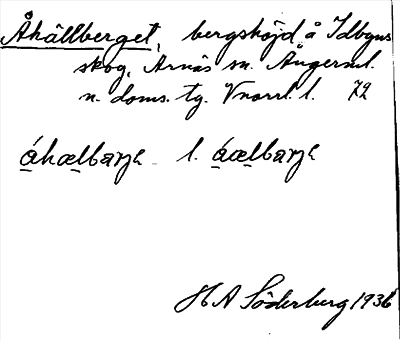 Åhällberget, bergshöjd å Idbyns
skog, Arnäs sn. Ångerml.
n. doms. tg. Vnorrl. l. 72
áhælbarjə l. áælbarjə
H A Söderberg 1936